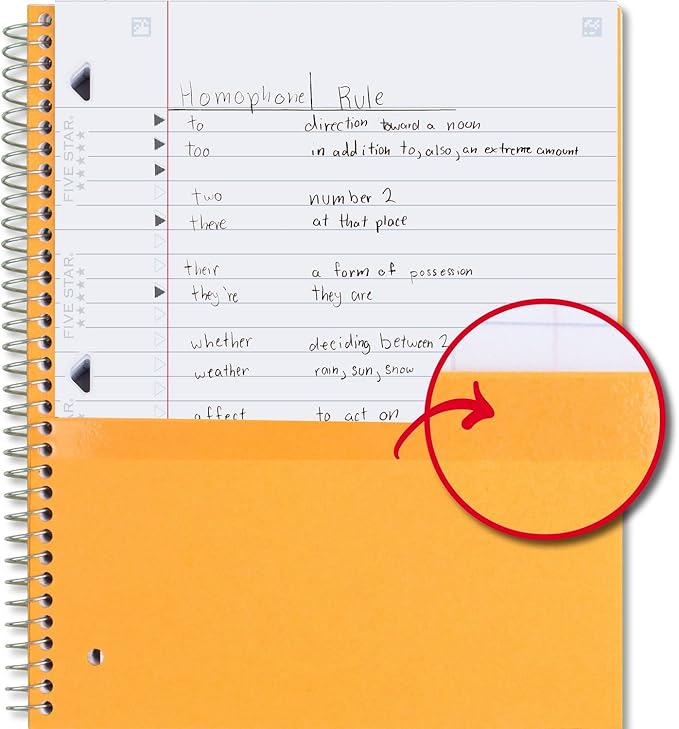 Homophone Rule
to direction toward a noun
too in addition to, also, an extreme amount
FIVE STAR
two number 2
there at that place
their a form of possession
they're they are
FIVE STAR
whether deciding between 2
weather rain, sun, snow
STAR
affect to act on